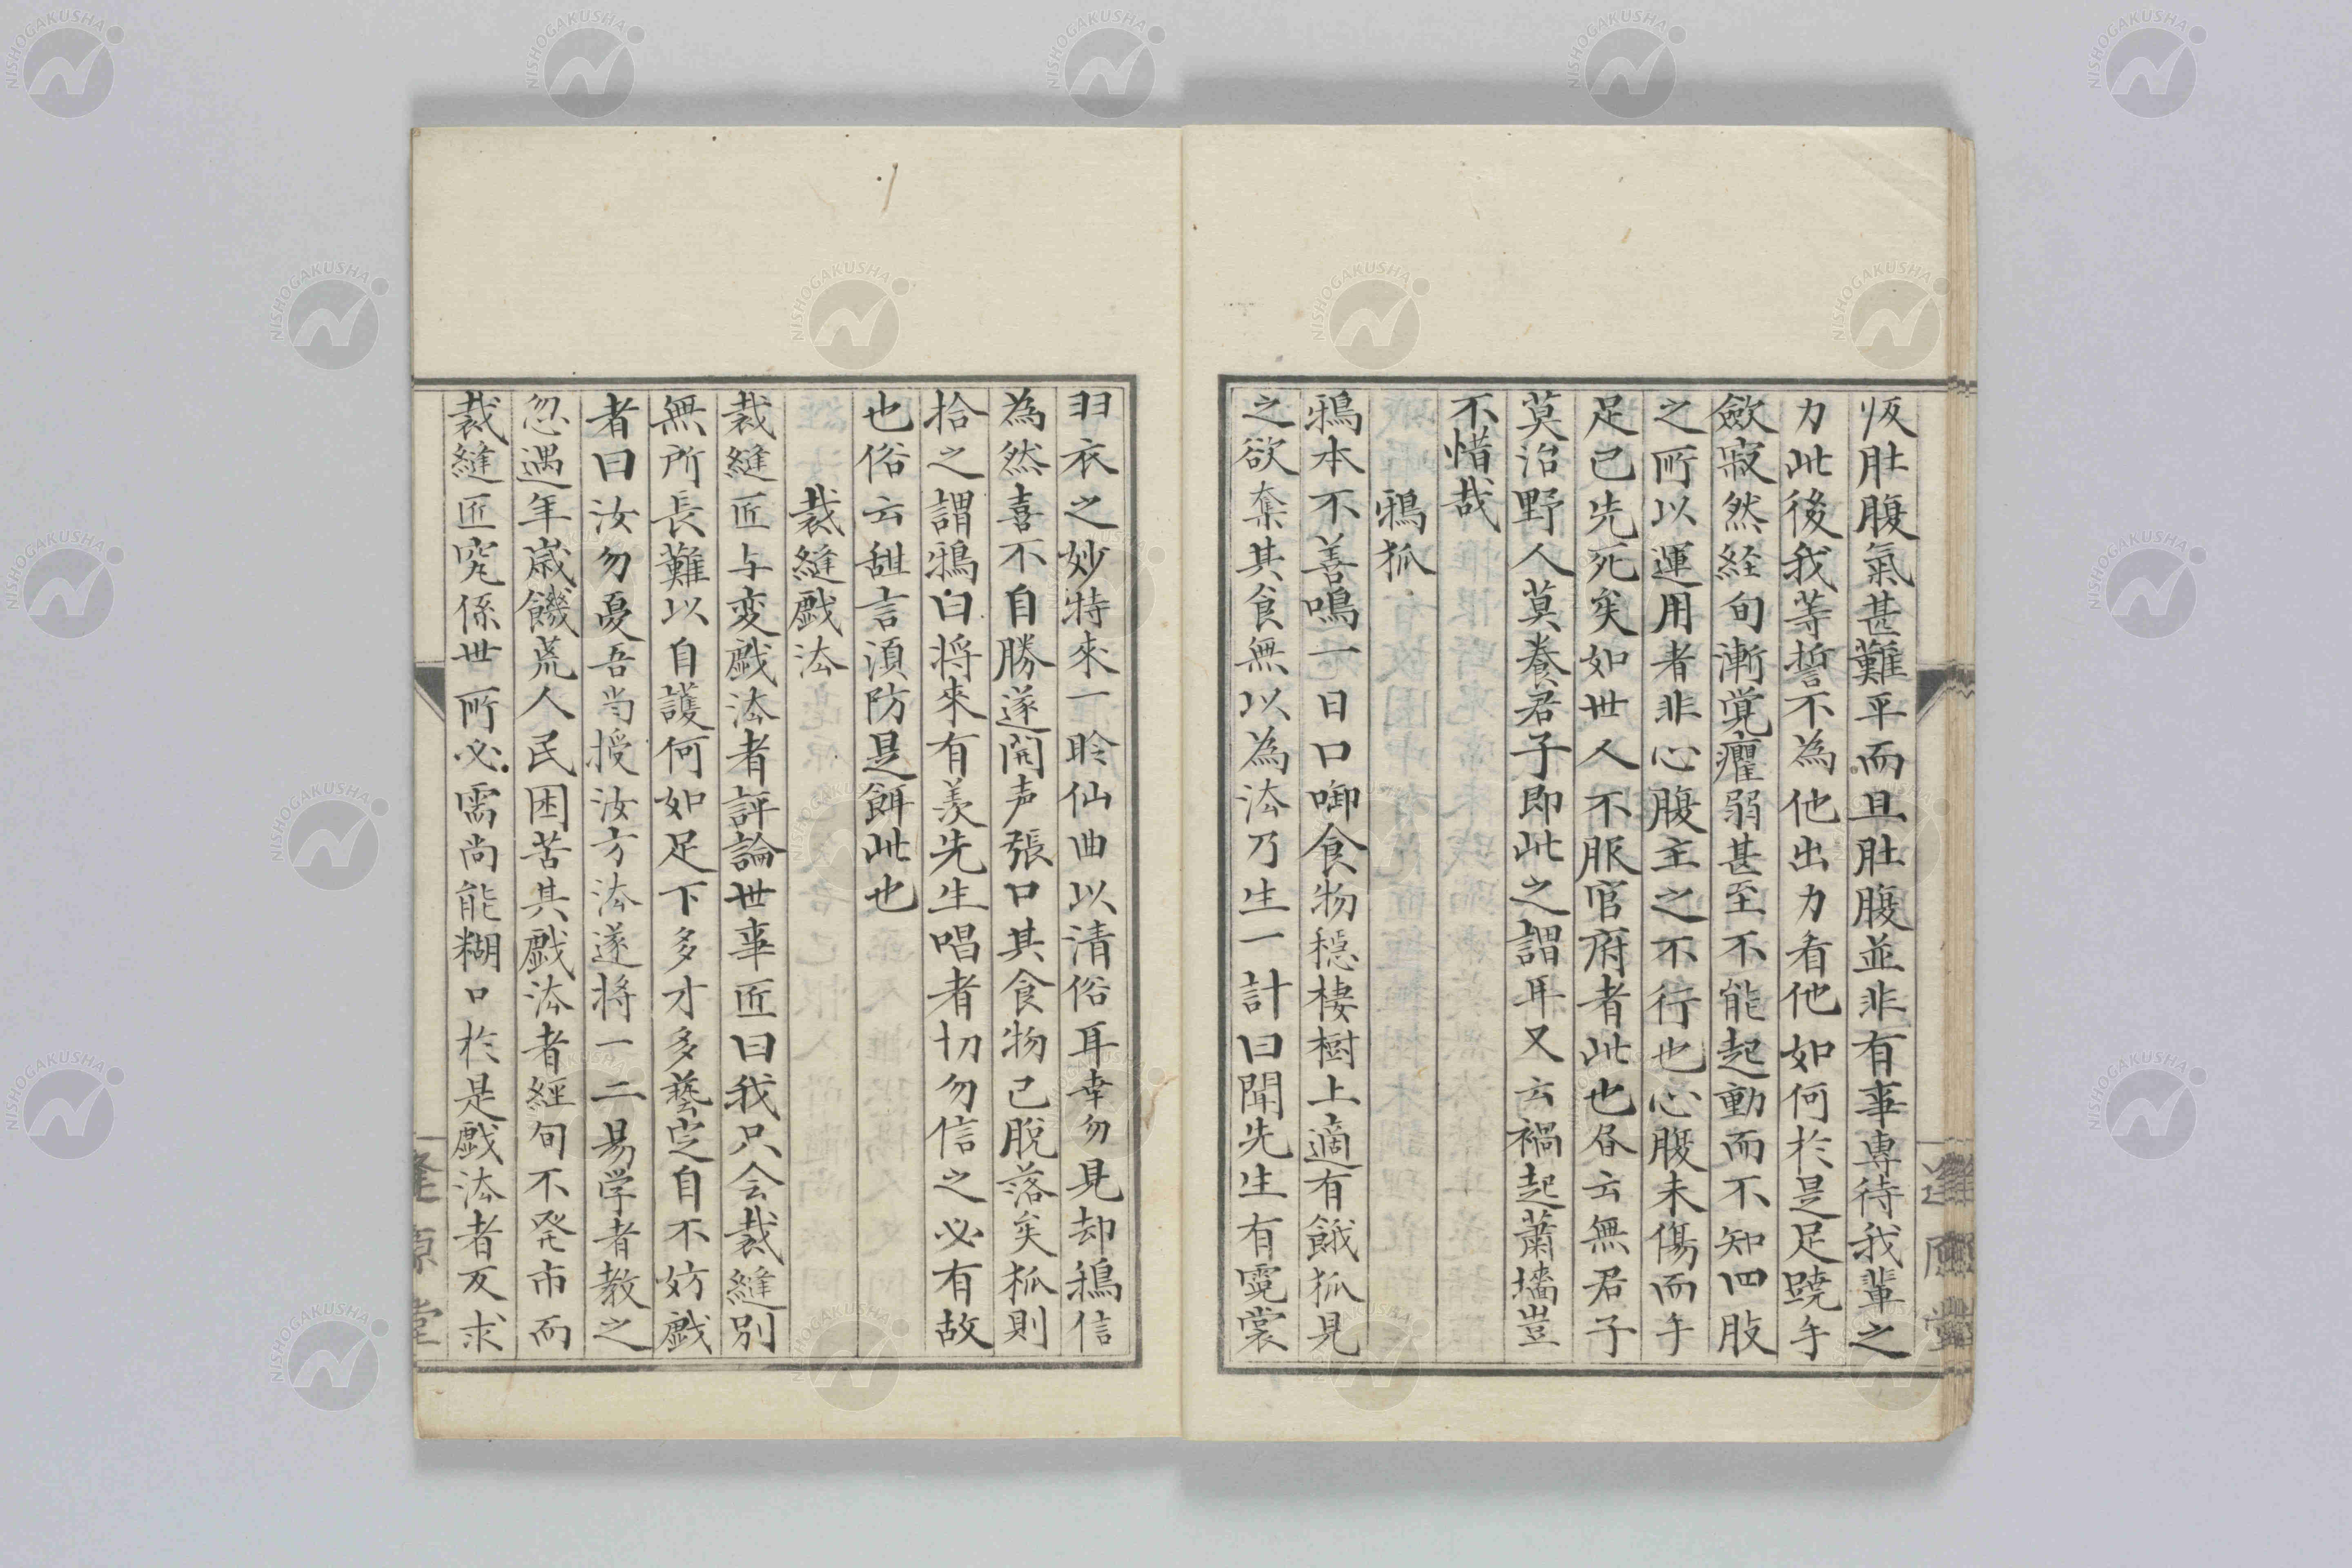 恆肚腹氣甚難平而且肚腹並非有事專待我輩之
力此後我等誓不為他出力看他如何於是足蹺手
斂寂然経旬漸覚癯弱甚至不能起動而不知四肢
之所以運用者非心腹主之不行也心腹未傷而手
足已先死矣如世人不服官府者此也俗云無君子
莫治野人莫養君子即此之謂耳又云禍起蕭墻豈
不惜哉
鴉狐
鴉本不善鳴一日口啣食物穏棲樹上適有餓狐見
之欲奪其食無以為法乃生一計曰聞先生有霓裳
羽衣之妙特來一聆仙曲以清俗耳幸勿見却鴉信
為然喜不自勝遂開声張口其食物已脫落矣狐則
拾之謂鴉曰将來有羨先生唱者切勿信之必有故
也俗云甜言須防是餌此也
裁縫戯法
裁縫匠与変戯法者評論世事匠曰我只会裁縫別
無所長難以自護何如足下多才多藝定自不妨戯
者曰汝勿憂吾当授汝方法遂将一二易学者教之
忽遇年歳饑荒人民困苦其戯法者經旬不発市而
裁縫匠究係世所必需尚能糊口於是戯法者反求
逢原堂
NISHOGAKUSHA